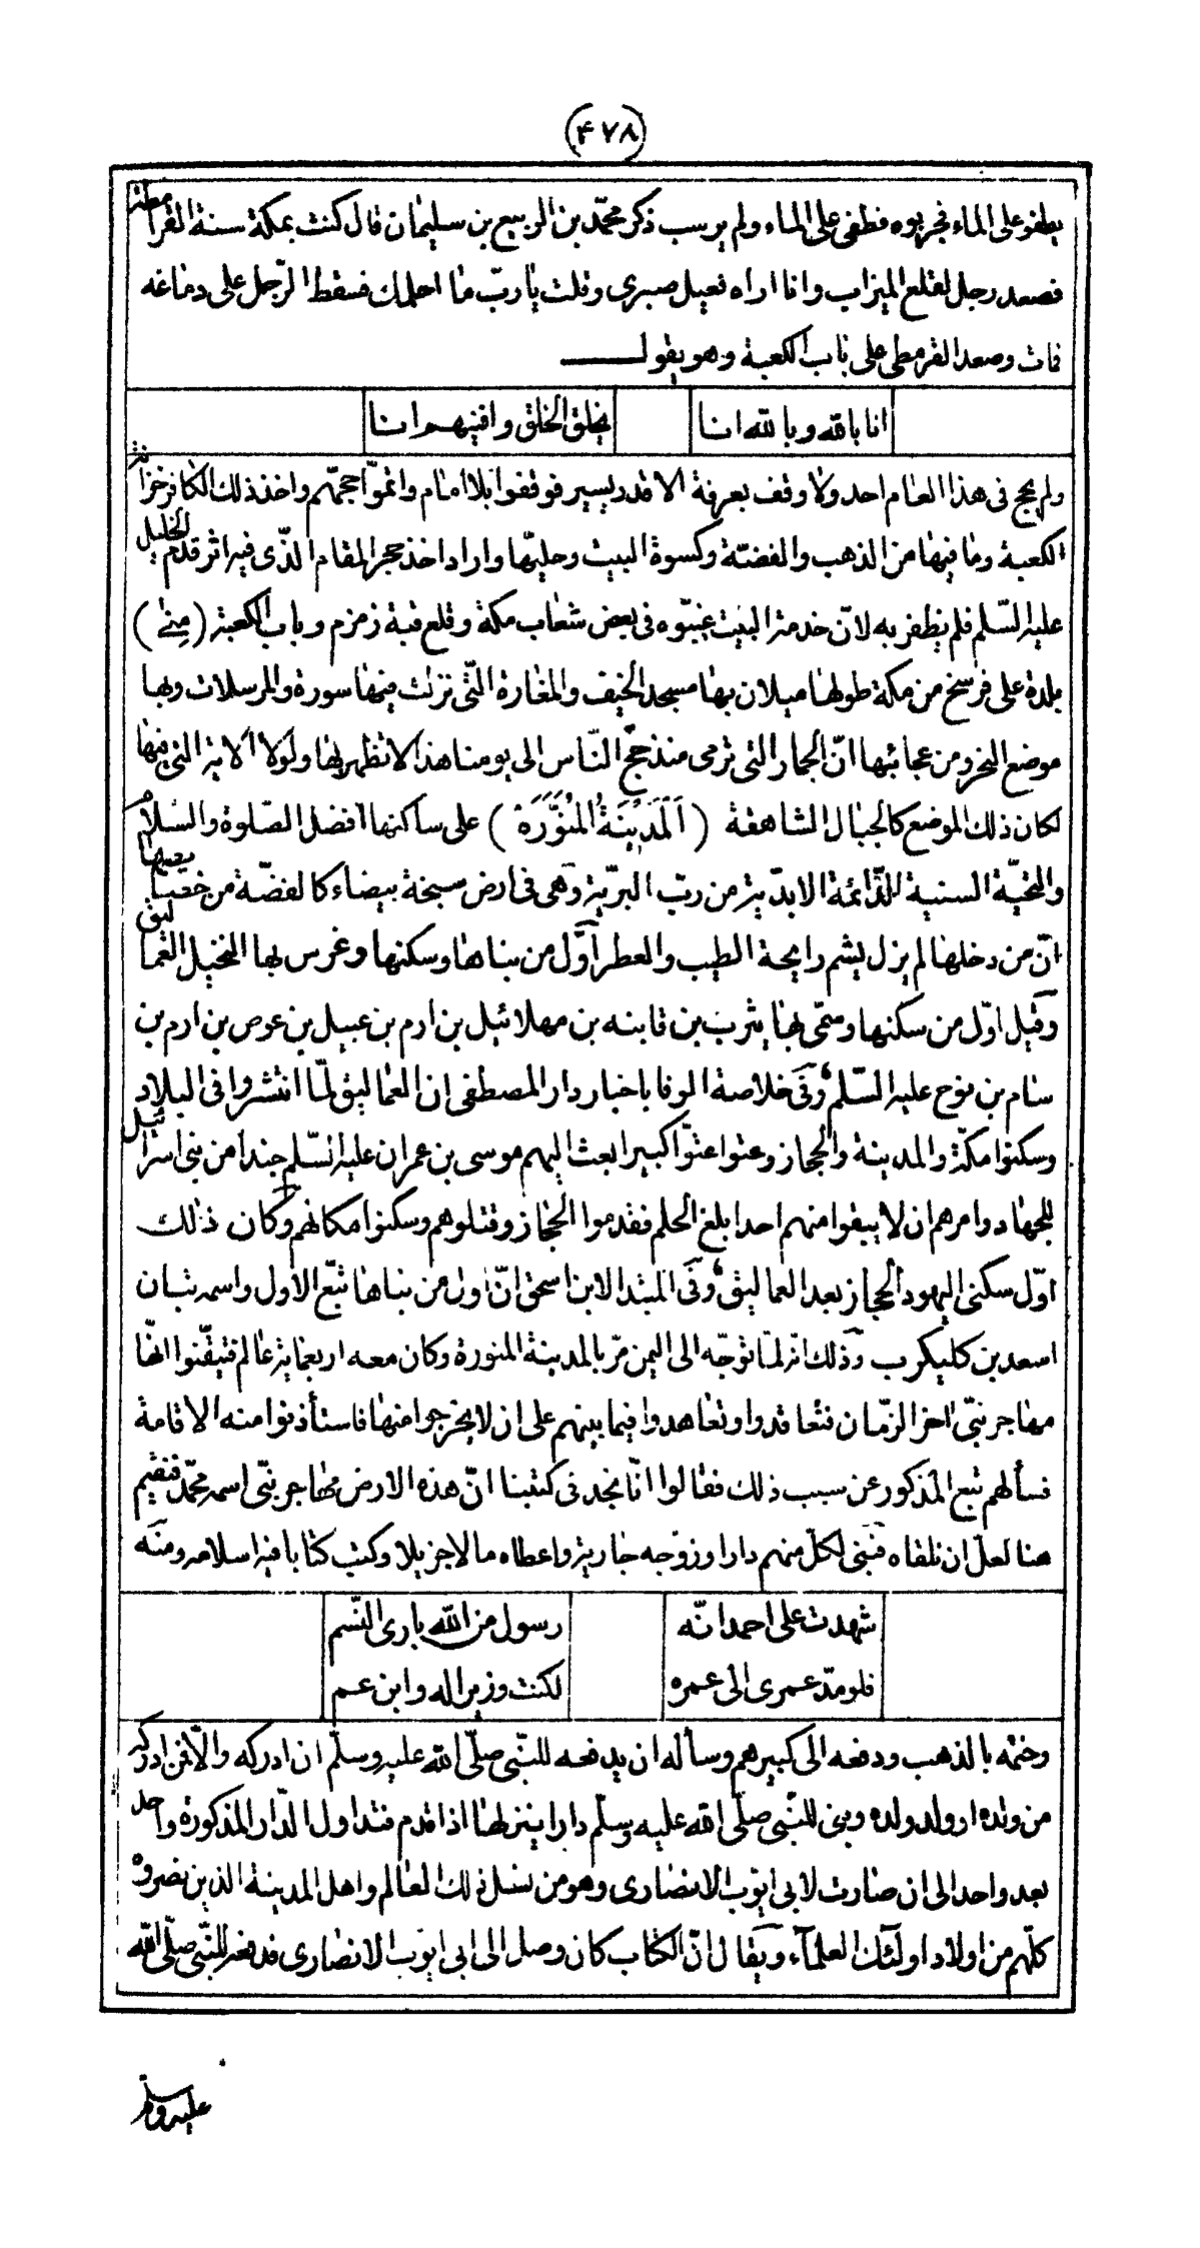 (۴۷۸)
يطفو على الماء فجربوه فطفى على الماء ولم يرسب ذكر محمّد بن الربيع بن سليمان قال كنت بمكة سنة القرامطة
فصعد رجل لقلع الميزاب وانا اراه فعيل صبرى وقلت يا ربّ ما احلمك فسقط الرّجل على دماغه
فمات وصعد القرمطى على باب الكعبة وهو يقول
انا بالله وبالله انا يخلق الخلق وافنيهم انا
ولم يحج فى هذا العام احد ولا وقف بعرفة الا قدر يسير فوقفوا بلا امام واتمّوا حجّهم واخذ ذلك الكافر خزائن
الكعبة وما فيها من الذهب والفضّة وكسوة البيت وحليّها واراد اخذ حجر المقام الذّى فيه اثر قدم الخليل
عليه السّلم فلم يظفر به لانّ خدمة البيت غيّبوه فى بعض شعاب مكة وقلع قبة زمزم وباب الكعبة (مِنىٰ)
بلدة على فرسخ من مكة طولها ميلان بها مسجد الخيف والمغارة التّى نزلت فيها سورة والمرسلات وبها
موضع النحر ومن عجائبها انّ الجمار التى ترمى منذ حجّ النّاس الى يومنا هذا لا تظهر بها ولولا الاية التى فيها
لكان ذلك الموضع كالجبال الشاهقة (اَلْمَدِيْنَةُ الْمُنَوَّرَةُ) على ساكنها افضل الصّلوة والسّلام
والتحيّة السنية الدّائمة الابدّية من ربّ البريّة وهى فى ارض سبخة بيضاء كالفضّة من خصايصها
انّ من دخلها لم يزل يشم رايحة الطيب والعطر اوّل من بناها وسكنها وغرس بها النخيل العماليق
وقيل اوّل من سكنها وسمّى بها يثرب بن قاينه بن مهلائيل بن ارم بن عبيل بن عوص بن ارم بن
سام بن نوح عليه السّلم وفى خلاصة الوفا باخبار دار المصطفى ان العماليق لمّا انتشروا فى البلاد
وسكنوا مكّة والمدينة والحجاز وعتوا عتوّا كبيرا بعث اليهم موسى بن عمران عليه السّلم جندا من بنى اسرائيل
للجهاد وامرهم ان لا يبقوا منهم احدا بلغ الحلم فقدموا الحجاز وقتلوهم وسكنوا مكانهم وكان ذلك
اوّل سكنى اليهود الحجاز بعد العماليق وفى المبتدا لابن اسحق انّ اول من بناها تبّع الاول واسمه تبان
اسعد بن كليكرب وذلك انّه لمّا توجّه الى اليمن مرّ بالمدينة المنورة وكان معه اربعماية عالم فتيقّنوا انّها
مهاجر نبّى اخر الزمّان فتعاقدوا وتعاهدوا فيما بينهم على ان لا يخرجوا منها فاستأذنوا منه الاقامة
فسألهم تبع المذكور عن سبب ذلك فقالوا انّا نجد فى كتبنا انّ هذه الارض مهاجر نبّى اسمه محمّد فنقيم
هنا لعلّ ان نلقاه فبنى لكلّ منهم دارا وزوّجه جارية واعطاه مالا جزيلا وكتب كتابا فيه اسلامه ومنه
شهدت على احمد انّه رسول من الله بارى النّسم
فلو مدّ عمرى الى عمره لكنت وزيرا له وابن عم
وختمه بالذهب ودفعه الى كبيرهم وسأله ان يدفعه للنّبى صلّى الله عليه وسلّم ان ادركه والّا فمن ادركه
من ولده او ولد ولده وبنى للنّبى صلّى الله عليه وسلّم دارا ينزلها اذا قدم فتداول الدّار المذكورة واحد
بعد واحد الى ان صارت لابى ايّوب الانصارى وهو من نسل ذلك العالم واهل المدينة الذين نصروه
كلّهم من اولاد اولئك العلمآء ويقال انّ الكتاب كان وصل الى ابى ايّوب الانصارى فدفعه للنّبى صلّى الله
عليه وسلم